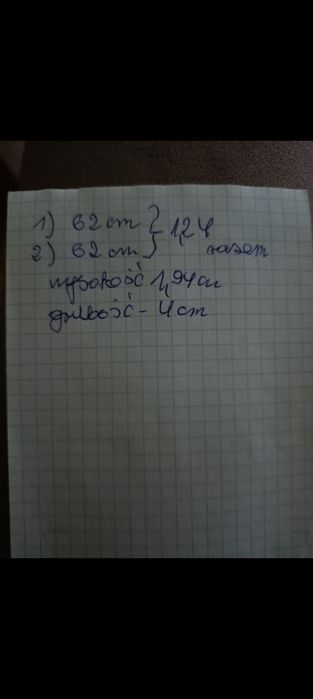 1) 62 cm } 1,24
2) 62 cm } razem
wysokość 1,94 cm
grubość - 4 cm